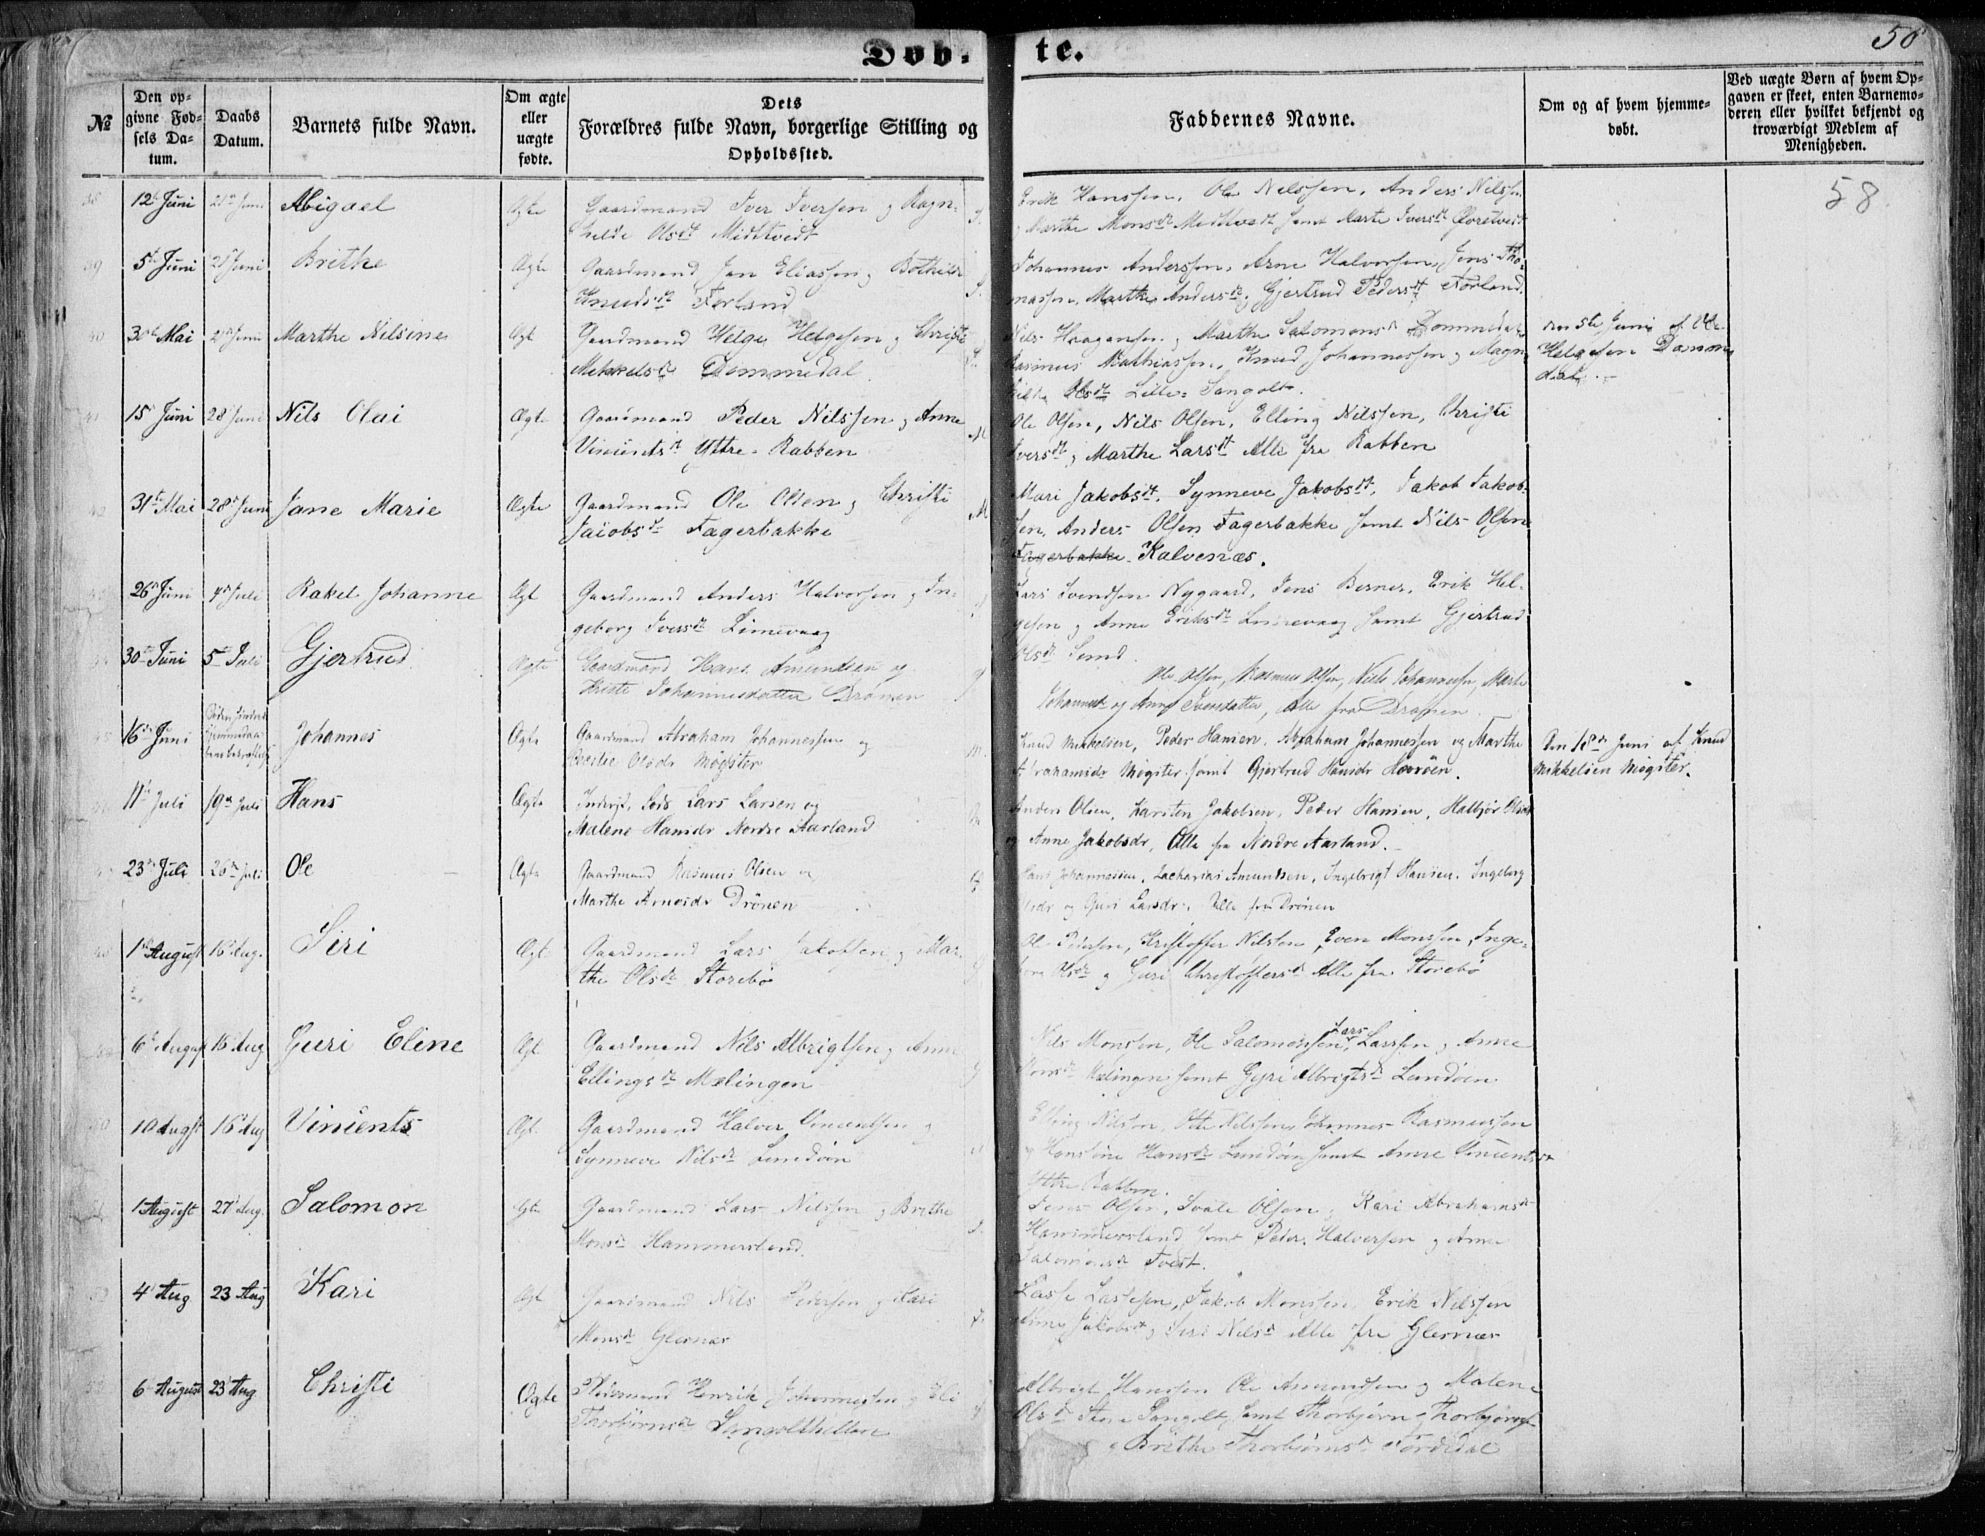 Døb- te.
56
58
№
Den op-
givne Fød-
sels Da-
tum.
Daabs
Datum.
Barnets fulde Navn.
Om ægte
eller
uægte
fødte.
Dets
Forældres fulde Navn, borgerlige Stilling og
Opholdssted.
Faddernes Navne.
Om og af hvem hjemme-
døbt.
Ved uægte Børn af hvem Op-
gaven er skeet, enten Barnemo-
deren eller hvilket bekjendt og
troværdigt Medlem af
Menigheden.
12te Juni Abigael Ægte Gaardmand Iver Iversen og Ragn-
hilde Olsdt Midttvedt
Erik Hanssen, Ole Nelssen, Anders Nilssen
Marthe Monsdt Midttvedt samt Marte Iversdt
5te Juni 21 Juni Brithe Ægte Gaardmand Jan Eliassen og Bothilde
Knudsdt Førland
Johannes Anderssen, Arne Halvorsen, Jens Tho-
massen, Marthe Andersdt, Gjertrud Pedersdt Førland.
30te Mai Juni Marthe Nilsine Ægt Gaardmand Helge Helgesen og Christi
Mikkelsdt Dommedal
Nils Haagensen og Marthe Salomonsdt Dommedal
Rasmus Mathiassen, Knud Johannessen og Magn-
hilde Olsdt Lille-Sangolt.
den 5te Juni af Ole
Helgesen Domme-
dal.
41 15 Juni 28 Juni Nils Olai Ægte Gaardmand Peder Nilssen og Anne
Vincentsdt Yttre-Rabben M
Ole Olsen, Nils Olsen, Elling Nilssen, Christi
Iversdt, Marthe Larsdt Alle fra Rabben
42 31te Mai 28de Juni Jane Marie Ægte Gaardmand Ole Olsen og Christi
Jacobsdt Fagerbakke M
Mari Jakobsdt, Synneve Jakobsdt, Jakob Jakob-
sen, Anders Olsen Fagerbakke samt Nils Olsen
Fagerbakke Kalvenæs.
26 Juni Juli Rakel Johanne Ægt Gaardmand Anders Halvorsen og In-
geborg Iversdt Limevaag
Lars Svendsen Nygaard, Jens Berner, Erik Hel-
gesen og Anne Eriksdt Limevaag samt Gjertrud
Olsdt Sund.
30te Juni 5te Juli Gjertrud Ægte Gaardmand Hans Amundsen og
Kristi Johannesdatter Drønen
Ole Olsen, Rasmus Olsen, Nils Johannessen, Marte
Johannesdt og Anne Iversdatter, Alle fra Drønen
45 16de Juni Johannes Ægte Gaardmand Abraham Johannessen og
Olsdr Møgster
Knud Mikkelsen, Peder Hansen, Abraham Johannessen og Marthe
Abrahamsdr Møgster samt Gjertrud Hansdr
Den 18de Juni af Knud
Mikkelsen Møgster.
11te Juli 19de Juli Hans Ægte Inderst, Lars Larsen og
Malene Hansdr Nordre Aarland
Anders Olsen, Karsten Jakobsen, Peder Hansen, Halbjør Olsdr
og Anne Jakobsdr, Alle fra Nordre Aarland.
23de Juli 26de Juli Ole Ægte Gaardmand Rasmus Olsen og
Marthe Arnesdr Drönen
Hans Johannessen, Zacharias Amundsen, Ingebrigt Hansen, Ingeborg
Olsdr og Guri Larsdr. Alle fra Drönen
1ste August 16 Aug. Siri Ægt Gaardmand Lars Jakobsen og Mar-
the Olsdr Storebø
Ole Pedersen, Kristoffer Nilsson, Even Monssen, Inge-
borg Olsdr og Guri Christoffersdt Alle fra Storebø
6te August 16 Aug Guri Eline Ægt Gaardmand Nils Albrigtsen og Anne
Ellingsdt Mælingen
Lars
Nils Monsen, Ole Salomonsen, Larssen og Anne
Monsdt Mælingen samt Gjøri Albrigtsdt Lundøen
50 10 Augst 16 Aug Vincents Ægt Gaardmand Halver Vincentsen og
Synneve Nilsdt Lundøen
Elling Nilson, Otte Nilssen, Johannes Rasmussen
og Hansine Hansdt Lundøen samt Anne Vincentsdt
Yttre Rabben.
1 August 27 Aug. Salomon Ægte Gaardmand Lars Nilssen og Brithe
Monsdt Hammersland
Jens Olsen, Sjvale Olsen og Kari Abrahamsdt
Hammersland samt Peder Halversen og Anne
Salomonsdt Tveit.
52 4 Aug 23 Aug Kari Ægt Gaardmand Nils Pedersen og Kari
Monsdt Glesnæs
Lasse Lassesen, Jakob Monssen, Erik Nilssen
Anne Jakobsdt og Siri Nilsdt Alle fra Glesnæs
53 6 August 23 Aug Christi Ægte Pladsmand Henrik Johannessen og Eli
Thorbjørnsdt Sangolthillen
Albrigt Hanssen, Ole Amundsen og Malene
Olsdt Store Sangolt, samt Thorbjørn Thorbjørnsen
og Brithe Thorbjørnsdt Førdedal